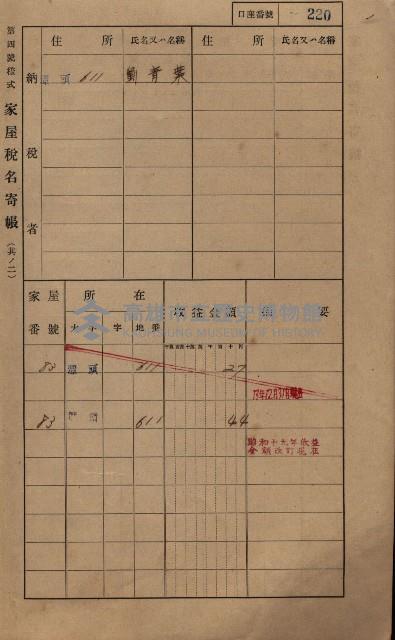 口座番號 220
第四號樣式 家屋稅名寄帳 (其ノ二)
納稅者
住所 氏名又ハ名稱 住所 氏名又ハ名稱
頭 611 劉青葉
家屋番號 所在 收益金額 摘要
大字 字 地番
83 頭 611 27
83 611 44
昭和十九年收益
金額改訂現在
高雄市立歷史博物館
KAOHSIUNG MUSEUM OF HISTORY